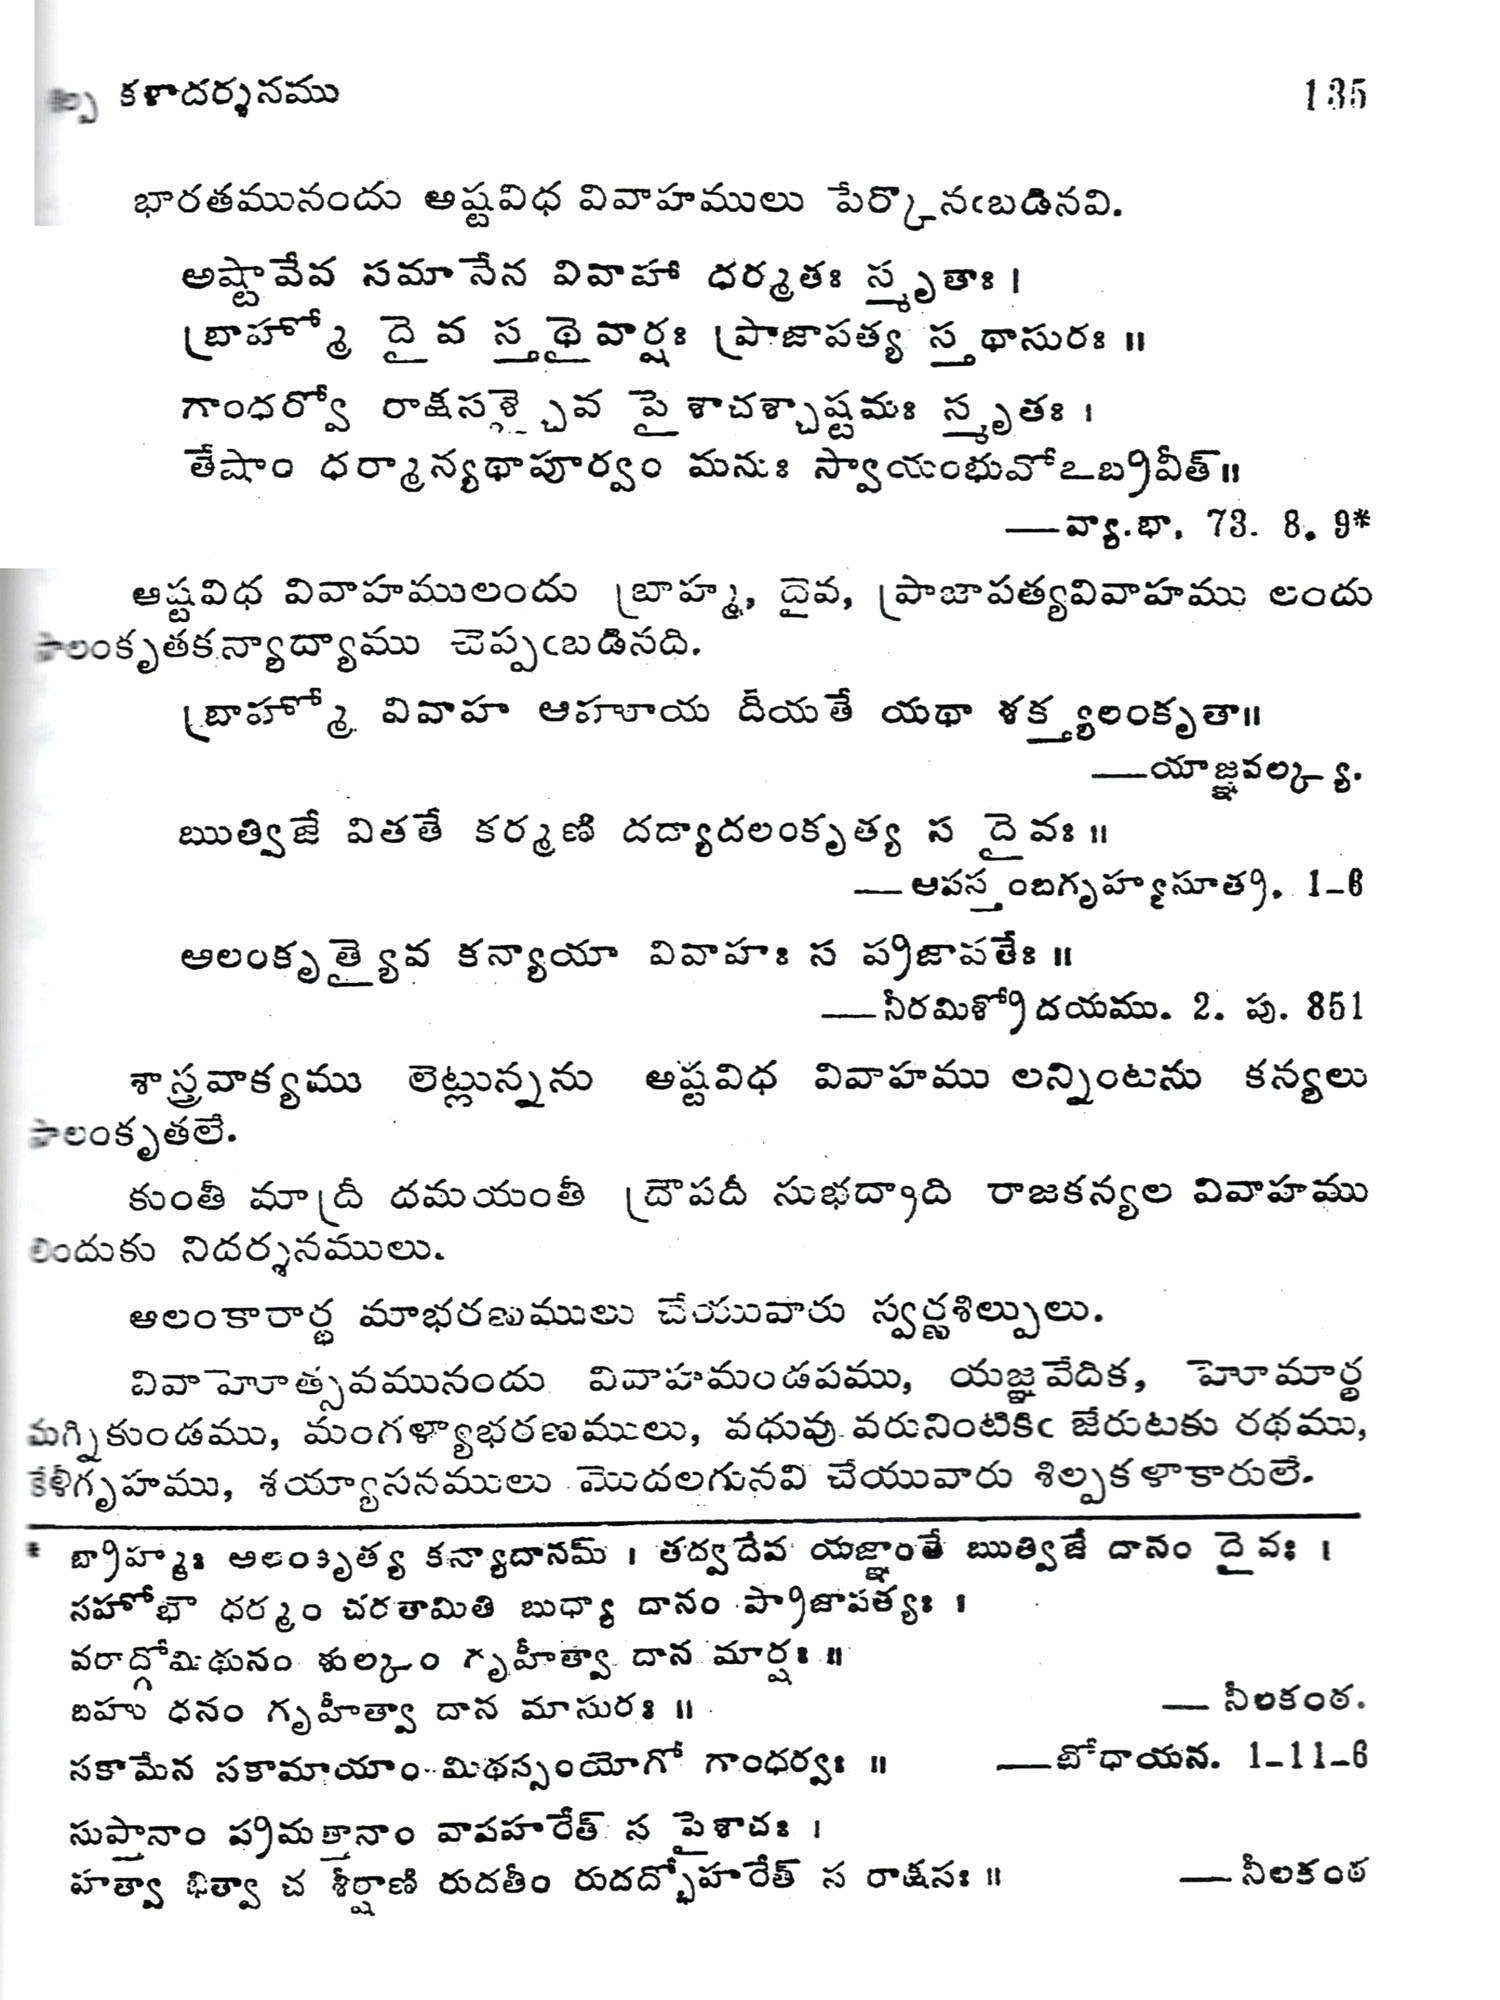 శిల్ప కళాదర్శనము 135
భారతమునందు అష్టవిధ వివాహములు పేర్కొనఁబడినవి.
అష్టావేవ సమాసేన వివాహా ధర్మతః స్మృతాః ।
బ్రాహ్మో దైవ స్తథైవార్షః ప్రాజాపత్య స్తథాసురః ॥
గాంధర్వో రాక్షసశ్చైవ పైశాచశ్చాష్టమః స్మృతః ।
తేషాం ధర్మాన్యథాపూర్వం మనుః స్వాయంభువోఽబ్రవీత్॥
—వ్యా.భా. 73. 8. 9*
అష్టవిధ వివాహములందు బ్రాహ్మ, దైవ, ప్రాజాపత్యవివాహము లందు
సాలంకృతకన్యాద్యాము చెప్పఁబడినది.
బ్రాహ్మో వివాహ ఆహూయ దీయతే యథా శక్త్యలంకృతా॥
—యాజ్ఞవల్క్య.
ఋత్విజే వితతే కర్మణి దద్యాదలంకృత్య స దైవః ॥
—ఆపస్తంబగృహ్యసూత్ర. 1-6
అలంకృత్యైవ కన్యాయా వివాహః స ప్రజాపతేః ॥
—నీరమిత్రోదయము. 2. పు. 851
శాస్త్రవాక్యము లెట్లున్నను అష్టవిధ వివాహము లన్నింటను కన్యలు
సాలంకృతలే.
కుంతీ మాద్రీ దమయంతీ ద్రౌపదీ సుభద్రాది రాజకన్యల వివాహము
లిందుకు నిదర్శనములు.
అలంకారార్థ మాభరణములు చేయువారు స్వర్ణశిల్పులు.
వివాహోత్సవమునందు వివాహమండపము, యజ్ఞవేదిక, హోమార్థ
మగ్నికుండము, మంగళ్యాభరణములు, వధువు వరునింటికిఁ జేరుటకు రథము,
కేళీగృహము, శయ్యాసనములు మొదలగునవి చేయువారు శిల్పకళాకారులే.
* బ్రాహ్మః అలంకృత్య కన్యాదానమ్ । తద్వదేవ యజ్ఞాంతే ఋత్విజే దానం దైవః ।
సహోభౌ ధర్మం చరతామితి బుధ్యా దానం ప్రాజాపత్యః ।
వరాద్గోమిథునం శుల్కం గృహీత్వా దాన మార్షః ॥
బహు ధనం గృహీత్వా దాన మాసురః ॥ — నీలకంఠ.
సకామేన సకామాయాం మిథస్సంయోగో గాంధర్వః ॥ —బోధాయన. 1-11-6
సుప్తానాం ప్రమత్తానాం వాపహరేత్ స పైశాచః ।
హత్వా భిత్వా చ శీర్షాణి రుదతీం రుదద్భోహరేత్ స రాక్షసః ॥ — నీలకంఠ